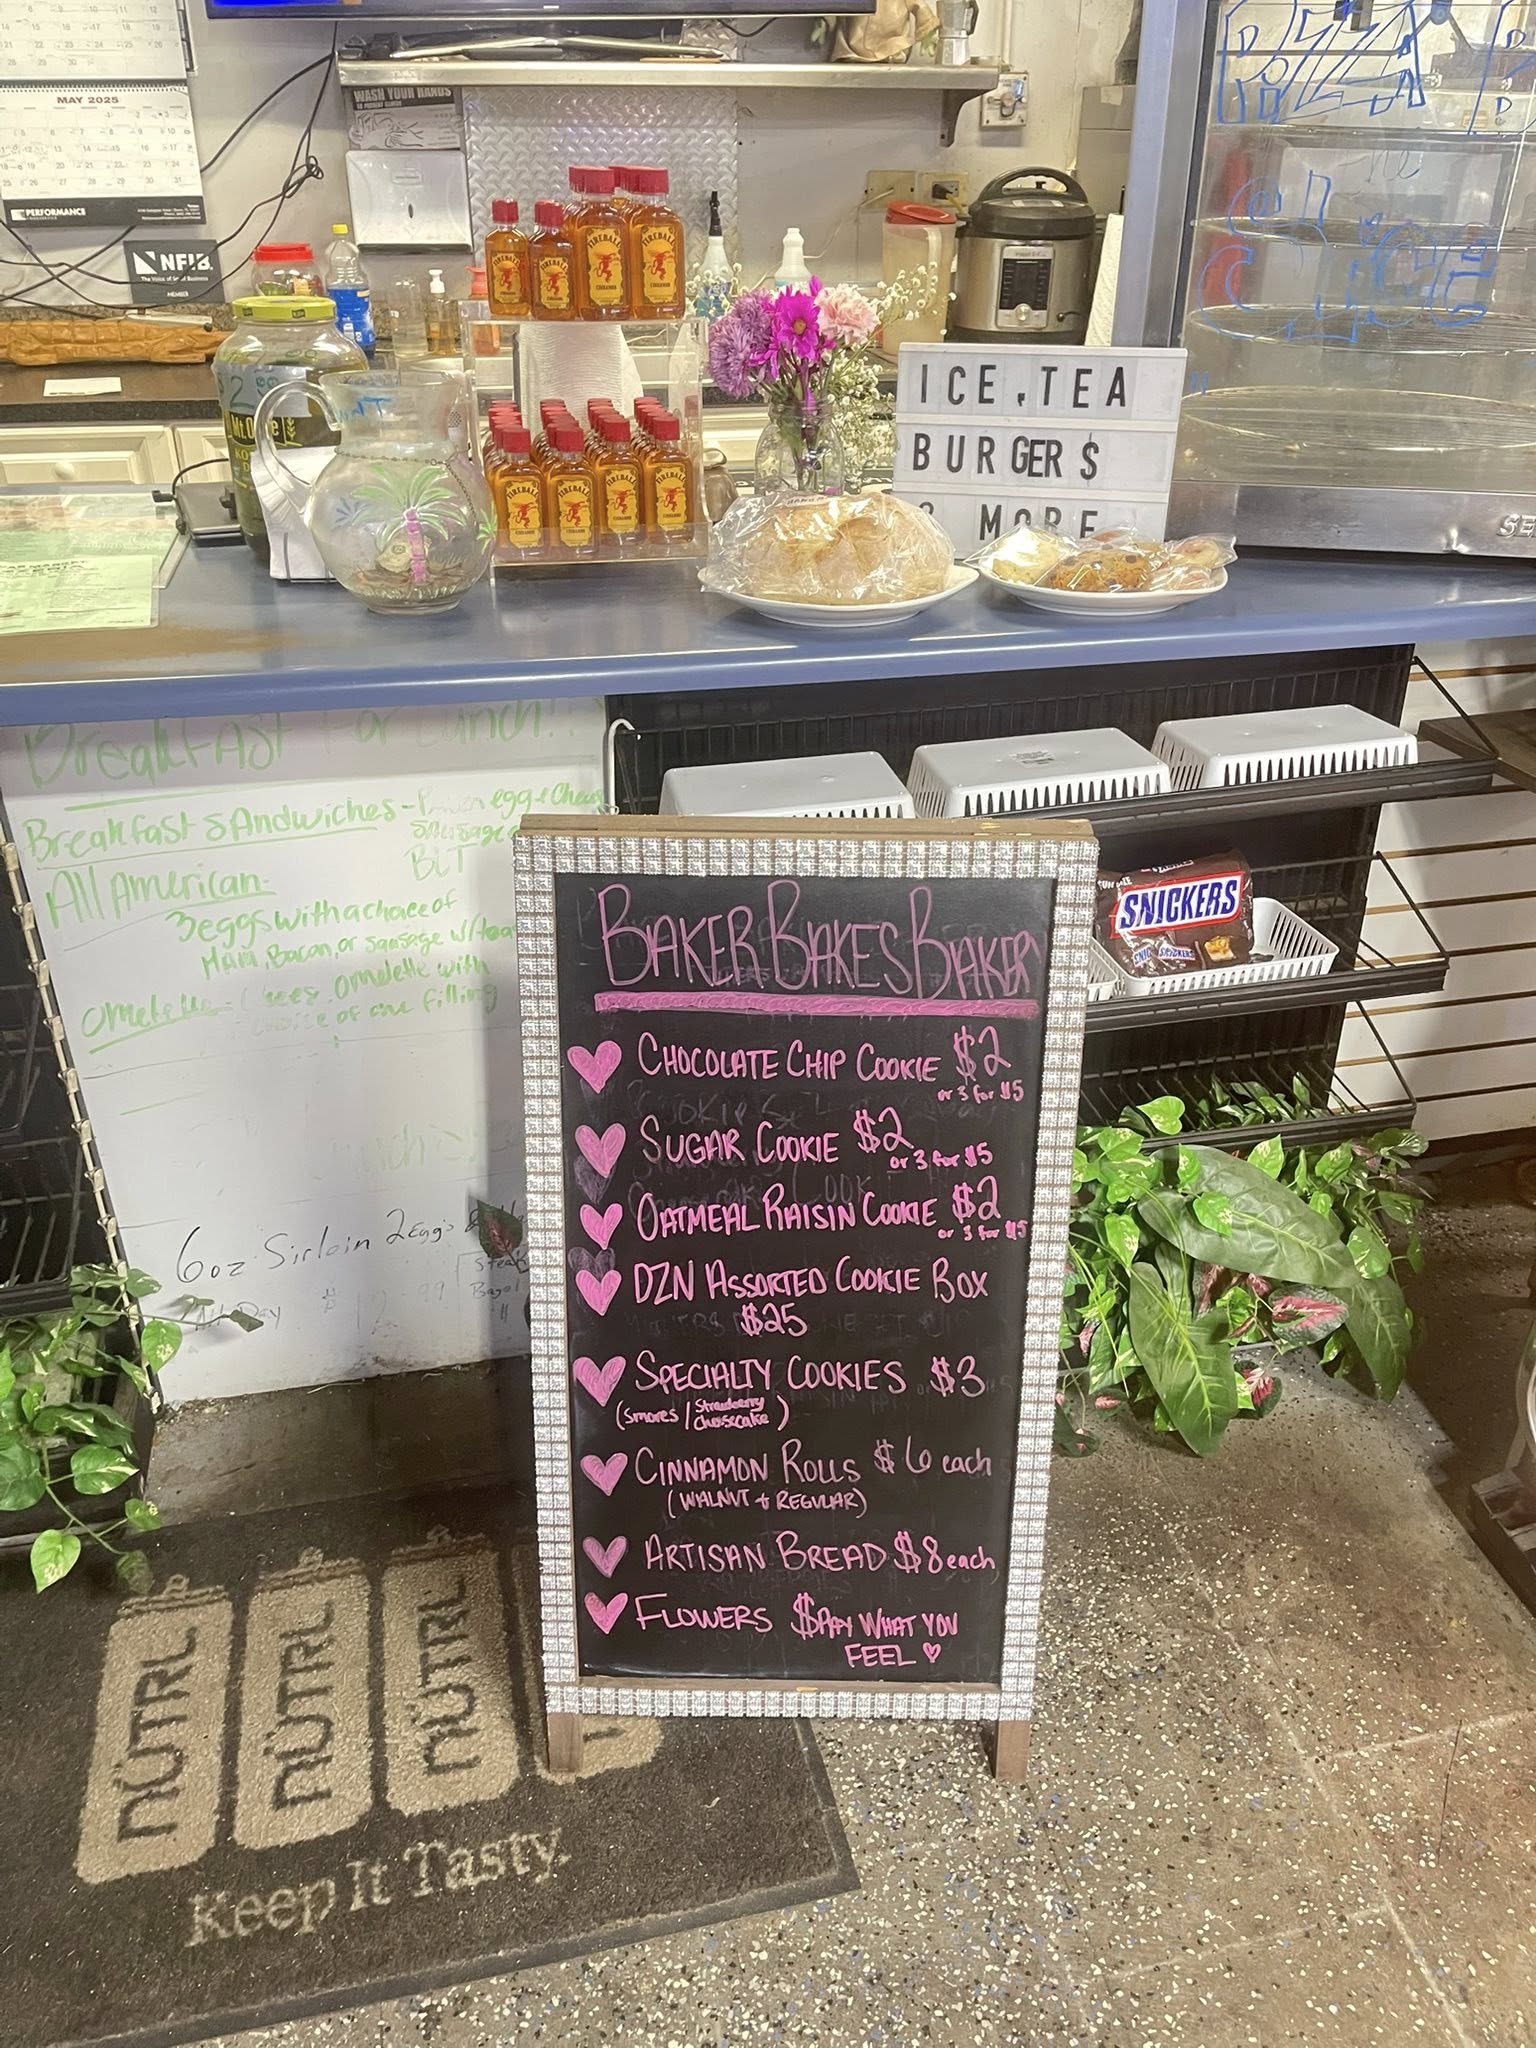 MAY 2025
PERFORMANCE
NFIB
The Voice of Small Business
MEMBER
WASH YOUR HANDS
FIREBALL
CINNAMON
Mt. Olive
ICE,TEA
BURGER$
MORE
PIZZA
SLICE
Breakfast For Lunch!!
Breakfast SAndwiches - egg + Chees
Sausage
BLT
All American-
3 eggs with a choice of
Ham, Bacon, or Sausage w/
Omelette with
choice of one filling
6oz Sirloin 2 Eggs
All Day
BAKER BAKES BAKER
CHOCOLATE CHIP COOKIE $2
or 3 for $5
SUGAR COOKIE $2
or 3 for $5
OATMEAL RAISIN COOKIE $2
or 3 for $5
DZN ASSORTED COOKIE BOX
$25
SPECIALTY COOKIES $3
(Smores / Strawberry Cheesecake)
CINNAMON ROLLS $6 each
(WALNUT + REGULAR)
ARTISAN BREAD $8 each
FLOWERS $PAY WHAT YOU
FEEL
SNICKERS
NÜTRL
NÜTRL
NÜTRL
Keep It Tasty.